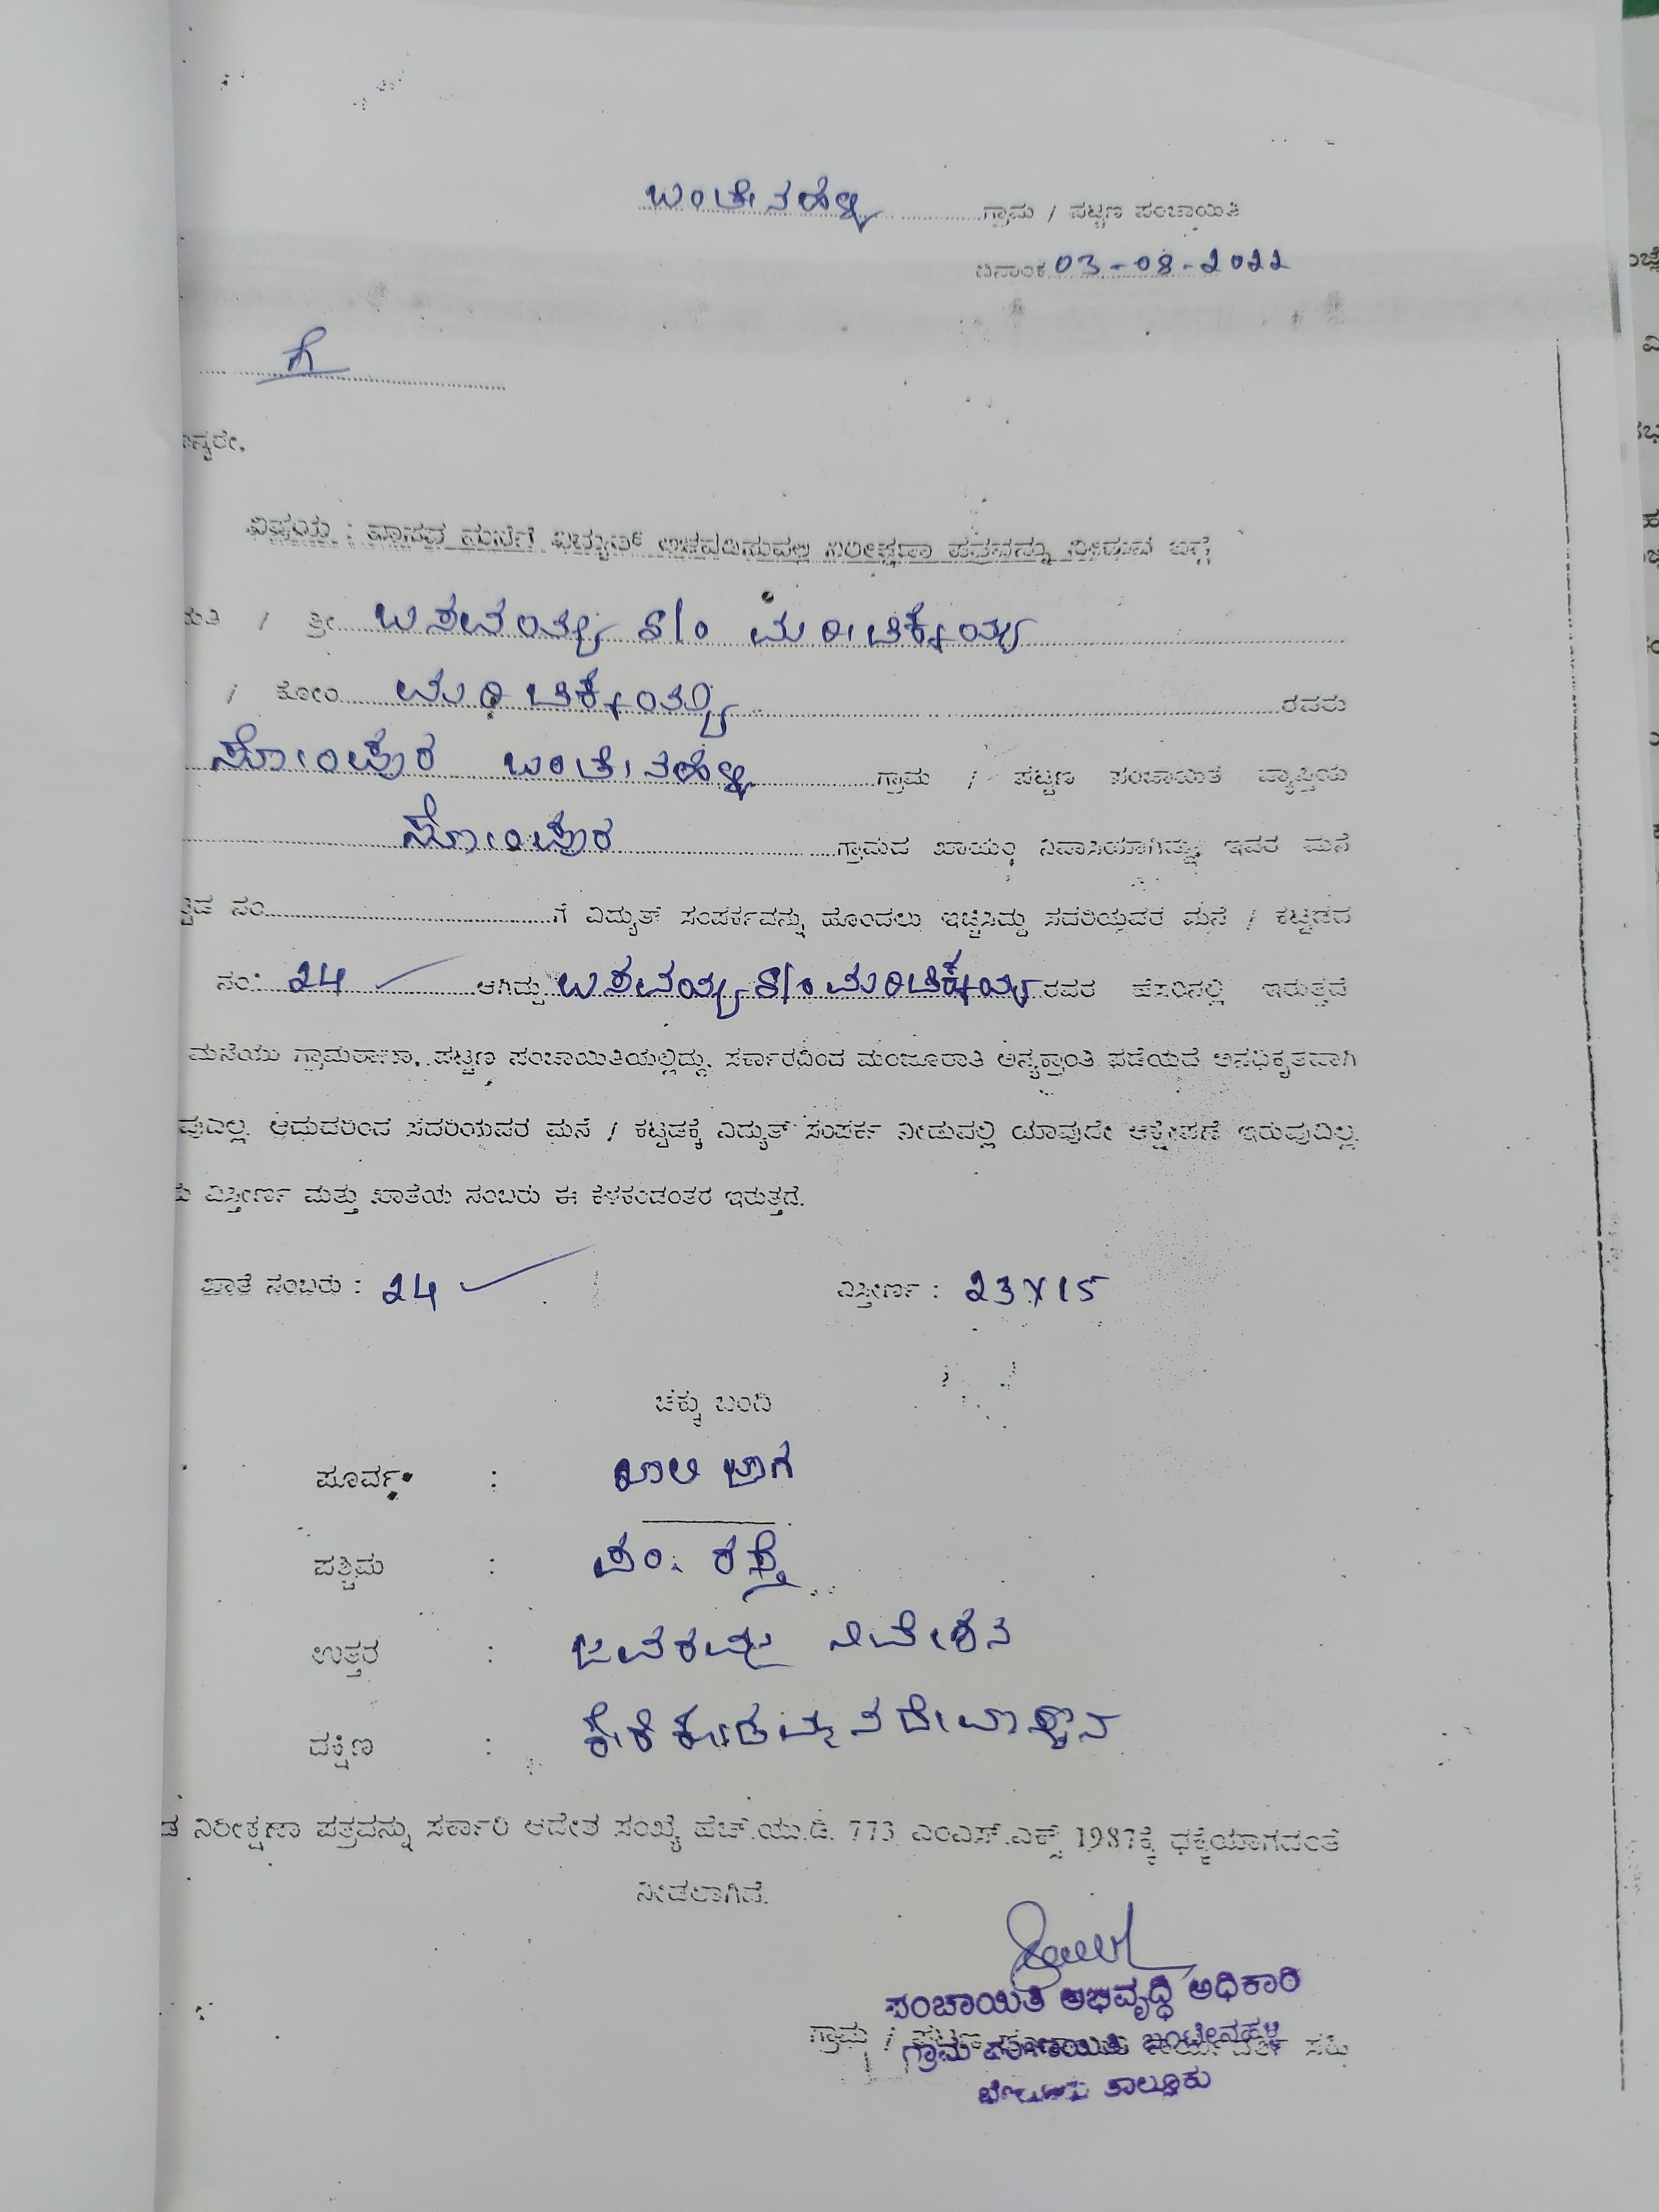 ಬಂಟೇನಹಳ್ಳಿ ಗ್ರಾಮ / ಪಟ್ಟಣ ಪಂಚಾಯಿತಿ
ದಿನಾಂಕ 03-08-2022
ಗೆ
ನ್ಯರೇ,
ವಿಷಯ : ವಾಸದ ಮನೆಗೆ ವಿದ್ಯುತ್ ಅಳವಡಿಸುವಲ್ಲಿ ನಿರೀಕ್ಷಣಾ ಪತ್ರವನ್ನು ನೀಡುವ ಬಗ್ಗೆ
ಮತಿ / ಶ್ರೀ ಬಸವಯ್ಯ S/o ಮರಿಚಿಕ್ಕಯ್ಯ
/ ಕೋಂ ಮರಿಚಿಕ್ಕಯ್ಯ ರವರು
ಸೋಂಪುರ ಬಂಟೇನಹಳ್ಳಿ ಗ್ರಾಮ / ಪಟ್ಟಣ ಪಂಚಾಯಿತಿ ವ್ಯಾಪ್ತಿಯ
ಸೋಂಪುರ ಗ್ರಾಮದ ಖಾಯಂ ನಿವಾಸಿಯಾಗಿದ್ದು, ಇವರ ಮನೆ
ಟ್ಟಡ ನಂ ಗೆ ವಿದ್ಯುತ್ ಸಂಪರ್ಕವನ್ನು ಹೊಂದಲು ಇಚ್ಚಿಸಿದ್ದು ಸದರಿಯವರ ಮನೆ / ಕಟ್ಟಡದ
ನಂ: 24 ಆಗಿದ್ದು ಬಸವಯ್ಯ S/o ಮರಿಚಿಕ್ಕಯ್ಯ ರವರ ಹೆಸರಿನಲ್ಲಿ ಇರುತ್ತದೆ
ಮನೆಯು ಗ್ರಾಮಠಾಣಾ, ಪಟ್ಟಣ ಪಂಚಾಯಿತಿಯಲ್ಲಿದ್ದು, ಸರ್ಕಾರದಿಂದ ಮಂಜೂರಾತಿ ಅನ್ಯಕ್ರಾಂತಿ ಪಡೆಯದೆ ಅನಧಿಕೃತವಾಗಿ
ವುದಿಲ್ಲ. ಆದುದರಿಂದ ಸದರಿಯವರ ಮನೆ / ಕಟ್ಟಡಕ್ಕೆ ವಿದ್ಯುತ್ ಸಂಪರ್ಕ ನೀಡುವಲ್ಲಿ ಯಾವುದೇ ಆಕ್ಷೇಪಣೆ ಇರುವುದಿಲ್ಲ.
ವಿಸ್ತೀರ್ಣ ಮತ್ತು ಖಾತೆಯ ನಂಬರು ಈ ಕೆಳಕಂಡಂತರ ಇರುತ್ತದೆ.
ಖಾತೆ ನಂಬರು : 24 ವಿಸ್ತೀರ್ಣ : 23X15
ಚಕ್ಕು ಬಂದಿ
ಪೂರ್ವ : ಖಾಲಿ ಜಾಗ
ಪಶ್ಚಿಮ : ಪಂ. ರಸ್ತೆ
ಉತ್ತರ : ಜವರಯ್ಯ ನಿವೇಶನ
ದಕ್ಷಿಣ : ದೇವಾಸ್ಥಾನ
ಡ ನಿರೀಕ್ಷಣಾ ಪತ್ರವನ್ನು ಸರ್ಕಾರಿ ಆದೇಶ ಸಂಖ್ಯೆ ಹೆಚ್.ಯು.ಡಿ. 773 ಎಂಎಸ್.ಎಕ್ಸ್ 1987ಕ್ಕೆ ಧಕ್ಕೆಯಾಗದಂತೆ
ನೀಡಲಾಗಿದೆ.
ಪಂಚಾಯಿತಿ ಅಭಿವೃದ್ಧಿ ಅಧಿಕಾರಿ
ಗ್ರಾಮ / ಪಟ್ಟಣ ಸಹಿ
ಗ್ರಾಮ ಪಂಚಾಯಿತಿ ಬಂಟೇನಹಳ್ಳಿ
ಬೇಲೂರು ತಾಲ್ಲೂಕು